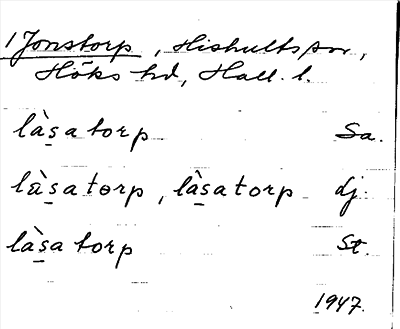 1 Jonstorp, Hishults sn,
Höks hd, Hall. l.
làs̲atorp Sa.
làs̲atɵrp, làs̲atorp dj.
làs̲atorp St.
1947.